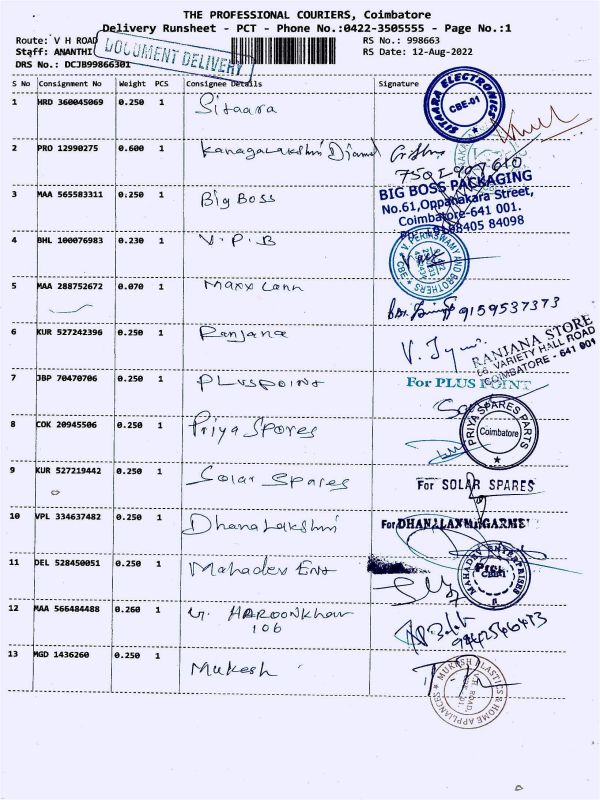 THE PROFESSIONAL COURIERS, Coimbatore
Delivery Runsheet - PCT - Phone No.:0422-3505555 - Page No.:1
Route: V H ROAD
RS No.: 998663
Staff: ANANTHI
RS Date: 12-Aug-2022
DOCUMENT DELIVERY
DRS No.: DCJB99866301
S No Consignment No Weight PCS Consignee Details Signature
1 HRD 360045069 0.250 1 Sitaara
SITAARA ELECTRONICS
CBE-01
2 PRO 12990275 0.600 1 Kanagalakshmi
3 MAA 565583311 0.250 1 Big Boss
BIG BOSS PACKAGING
No.61,Oppanakara Street,
Coimbatore-641 001.
98405 84098
4 BHL 100076983 0.230 1 V.P.B
V. PERIASWAMY AND BROTHERS
CBE
5 MAA 288752672 0.070 1 Maxx
9159537373
6 KUR 527242396 0.250 1 Ranjana
RANJANA STORE
VARIETY HALL ROAD
COIMBATORE - 641 001
7 JBP 70470706 0.250 1 PLUSPOINT
For PLUS POINT
8 COK 20945506 0.250 1 Priya Spares
PRIYA SPARES PARTS
Coimbatore
9 KUR 527219442 0.250 1 Solar Spares
For SOLAR SPARES
10 VPL 334637482 0.250 1 Dhanalakshmi
For DHANALAXMI GARME
11 DEL 528450051 0.250 1 Mahadev Ent
MAHADEV ENTERPRISES
12 MAA 566484488 0.260 1 HAROONKhan
106
13 MGD 1436260 0.250 1 Mukesh
MUKESH PLASTICS & HOME APPLIANCES